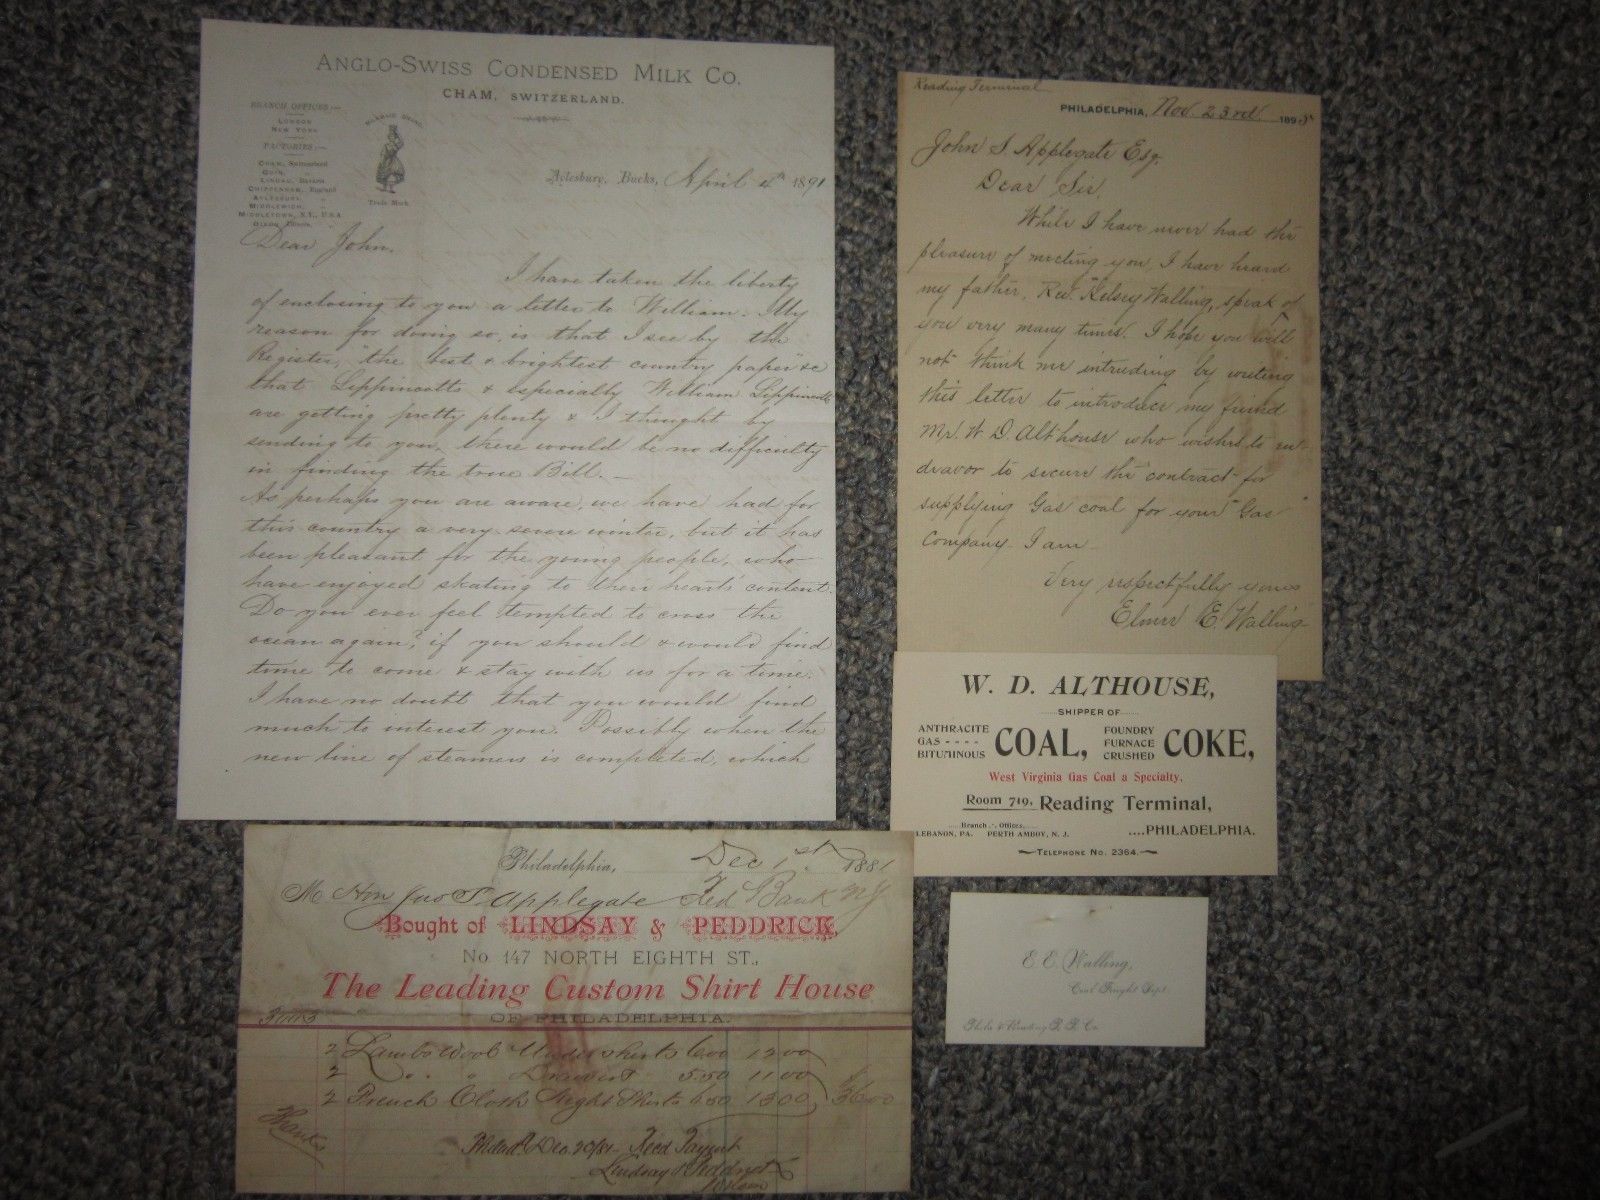 ANGLO-SWISS CONDENSED MILK CO.
CHAM, SWITZERLAND.
BRANCH OFFICES:—
LONDON
NEW YORK
FACTORIES:—
CHAM, Switzerland
GUIN,
LINDAU, Bavaria
CHIPPENHAM, England
AYLESBURY, "
MIDDLEWICH, "
MIDDLETOWN, N.Y., U.S.A
DIXON, Illinois, "
MILKMAID BRAND.
Trade Mark
Aylesbury, Bucks, April 4th 1891
Dear John.
I have taken the liberty
of enclosing to you a letter to William. My
reason for doing so, is that I see by the
Register, "the best & brightest country paper" &c
that Lippincotts & especially William Lippincotts
are getting pretty plenty & I thought by
sending to you, there would be no difficulty
in finding the true Bill.—
As perhaps you are aware, we have had for
this country a very severe winter, but it has
been pleasant for the young people, who
have enjoyed skating to their hearts content.
Do you ever feel tempted to cross the
ocean again?, if you should & would find
time to come & stay with us for a time.
I have no doubt that you would find
much to interest you. Possibly when the
new line of steamers is completed, which
Reading Terminal
PHILADELPHIA, Nov. 23rd 1895
John S Applegate Esq.
Dear Sir,
While I have never had the
pleasure of meeting you, I have heard
my father, Rev. Kelsey Walling, speak of
you very many times. I hope you will
not think me intruding by writing
this letter to introduce my friend
Mr. W. D. Althouse who wishes to en-
deavor to secure the contract for
supplying Gas coal for your "Gas"
Company. I am
Very respectfully yours
Elmer E. Walling
W. D. ALTHOUSE,
SHIPPER OF
ANTHRACITE
GAS - - - -
BITUMINOUS
COAL,
FOUNDRY
FURNACE
CRUSHED
COKE,
West Virginia Gas Coal a Specialty.
Room 719, Reading Terminal,
Branch Offices,
LEBANON, PA. PERTH AMBOY, N. J.
....PHILADELPHIA.
TELEPHONE No. 2364.
Philadelphia, Dec 1st 1881
M Hon Jno S. Applegate Red Bank NJ
Bought of LINDSAY & PEDDRICK,
No. 147 NORTH EIGHTH ST.,
The Leading Custom Shirt House
OF PHILADELPHIA.
2 Lambs Wool Undershirts 6.00 12 00
2 " " Drawers 5.50 11 00
2 French Cloth Night Shirts 6 50 13 00 $36 00
Thanks
Philad. Dec. 20/81 Recd Paymt
Lindsay & Peddrick
E. E. Walling,
Coal Freight Dept.
Phila & Reading R. R. Co.